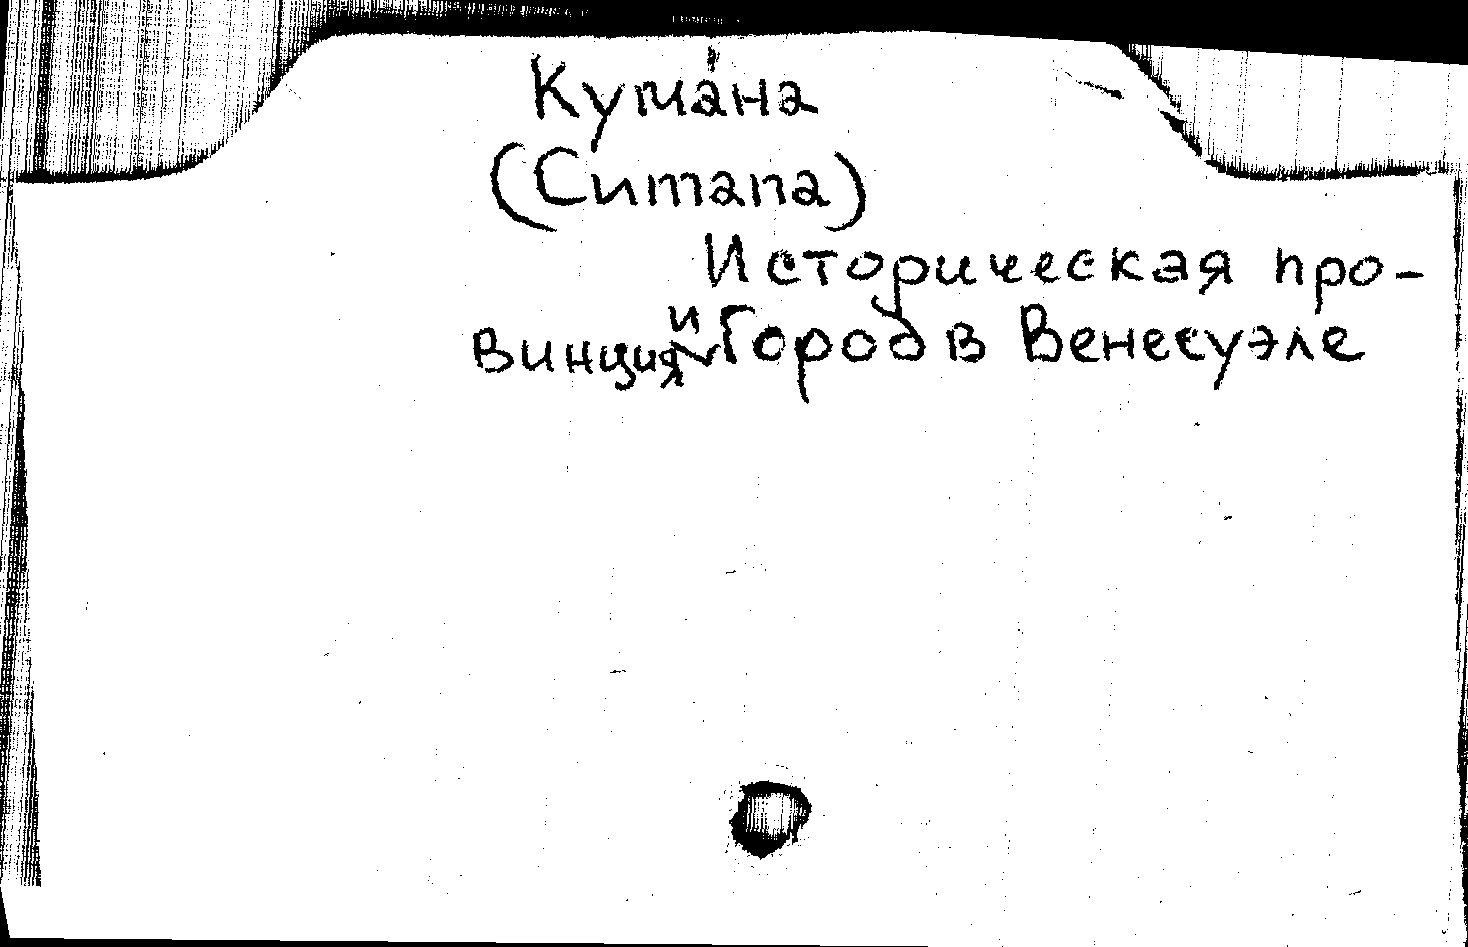 Кума́на
(Cumana)
Историческая про-
винция и город в Венесуэле